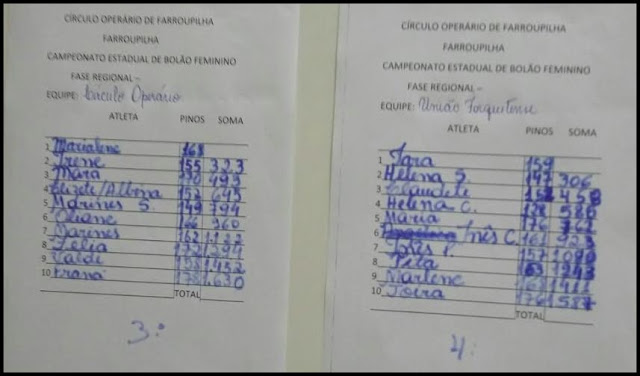 CÍRCULO OPERÁRIO DE FARROUPILHA
FARROUPILHA
CAMPEONATO ESTADUAL DE BOLÃO FEMININO
FASE REGIONAL –
EQUIPE: Círculo Operário
ATLETA PINOS SOMA
1 Marialene 168
2 Irene 155 323
3 Mara 493
4 Elizete/Albina 152 645
5 Marines S. 149 794
6 166 960
7 Marines 162 1.122
8 Celia
9 Valdi 1.452
10 178 1.630
TOTAL
3º
CÍRCULO OPERÁRIO DE FARROUPILHA
FARROUPILHA
CAMPEONATO ESTADUAL DE BOLÃO FEMININO
FASE REGIONAL –
EQUIPE: União Forquetense
ATLETA PINOS SOMA
1 Iara 159
2 Helena S. 147 306
3 Claudete 152 458
4 Helena C. 128 586
5 Maria 176 762
6 Inês C. 161 923
7 Inês P. 157 1080
8 163 1243
9 Marlene 168 1411
10 Joira 176 1587
TOTAL
4º